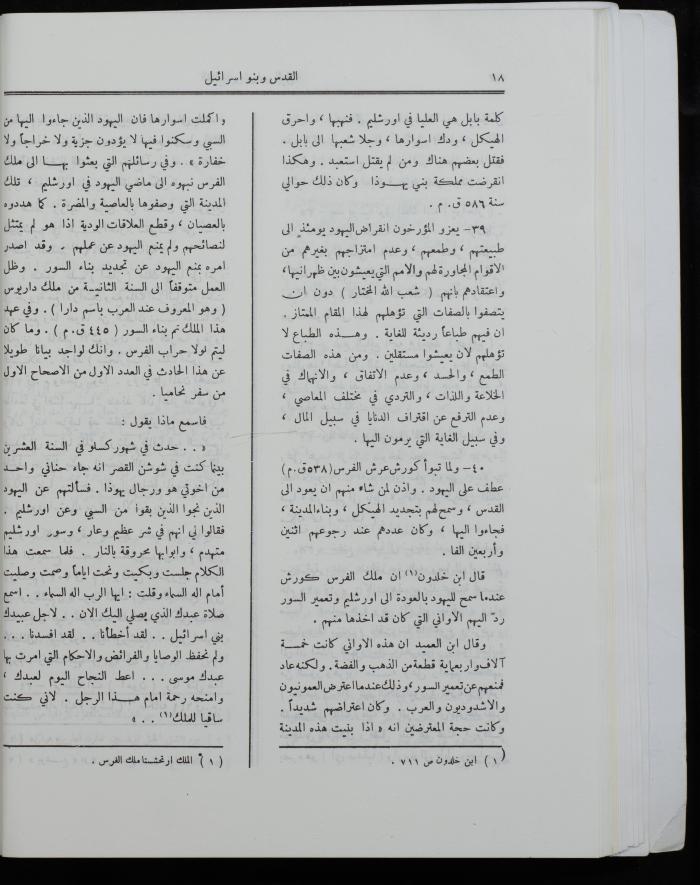 ١٨
القدس وبنو اسرائيل
كلمة بابل هي العليا في اورشليم . فنهبها ، واحرق
الهيكل ، ودك اسوارها ، وجلا شعبها الى بابل .
فقتل بعضهم هناك ومن لم يقتل استعبد . وهكذا
انقرضت مملكة بني يهوذا وكان ذلك حوالي
سنة ٥٨٦ ق . م .
٣٩- يعزو المؤرخون انقراض اليهود يومئذٍ الى
طبيعتهم ، وطمعهم ، وعدم امتزاجهم بغيرهم من
الاقوام المجاورة لهم والأمم التي يعيشون بين ظهرانيها،
واعتقادهم بانهم ( شعب الله المختار ) دون ان
يتصفوا بالصفات التي تؤهلهم لهذا المقام الممتاز .
ان فيهم طباعاً رديئة للغاية . وهذه الطباع لا
تؤهلهم لأن يعيشوا مستقلين . ومن هذه الصفات
الطمع ، والحسد ، وعدم الاتفاق ، والانهماك في
الخلاعة واللذات ، والتردي في مختلف المعاصي ،
وعدم الترفع عن اقتراف الدنايا في سبيل المال ،
وفي سبيل الغاية التي يرمون اليها .
٤٠- ولما تبوأ كورش عرش الفرس (٥٣٨ق.م)
عطف على اليهود . واذن لمن شاء منهم ان يعود الى
القدس ، وسمح لهم بتجديد الهيكل ، وبناء المدينة ،
فجاءوا اليها ، وكان عددهم عند رجوعهم اثنين
وأربعين الفا .
قال ابن خلدون (١) ان ملك الفرس كورش
عندما سمح لليهود بالعودة الى اورشليم وتعمير السور
ردّ اليهم الأواني التي كان قد اخذها منهم .
وقال ابن العميد ان هذه الاواني كانت خمسة
آلاف واربعماية قطعة من الذهب والفضة . ولكنه عاد
فمنعهم عن تعمير السور ، وذلك عندما اعترض العمونيون
والاشدوديون والعرب . وكان اعتراضهم شديداً .
وكانت حجة المعترضين انه « اذا بنيت هذه المدينة
( ١ ) ابن خلدون ص ٧١١ .
واكملت اسوارها فان اليهود الذين جاءوا اليها من
السبي وسكنوا فيها لا يؤدون جزية ولا خراجاً ولا
خفارة » . وفي رسائلهم التي بعثوا بها الى ملك
الفرس نبهوه الى ماضي اليهود في اورشليم ، تلك
المدينة التي وصفوها بالعاصية والمضرة . كما هددوه
بالعصيان ، وقطع العلاقات الودية اذا هو لم يمتثل
لنصائحهم ولم يمنع اليهود عن عملهم . وقد اصدر
امره بمنع اليهود عن تجديد بناء السور . وظل
العمل متوقفاً الى السنة الثانية من ملك داريوس
( وهو المعروف عند العرب باسم دارا ) . وفي عهد
هذا الملك تم بناء السور ( ٤٤٥ ق.م ) . وما كان
ليتم لولا حراب الفرس . وانك لواجد بياناً طويلا
عن هذا الحادث في العدد الاول من الاصحاح الاول
من سفر نحاميا .
فاسمع ماذا يقول :
« . . حدث في شهور كسلو في السنة العشرين
بينما كنت في شوشن القصر انه جاء حناني واحد
من اخوتي هو ورجال يهوذا . فسألتهم عن اليهود
الذين نجوا الذين بقوا من السبي وعن اورشليم .
فقالوا لي انهم في شر عظيم وعار ، وسور اورشليم
متهدم ، وابوابها محروقة بالنار . فلما سمعت هذا
الكلام جلست وبكيت ونحت اياماً وصمت وصليت
أمام اله السماء وقلت : ايها الرب اله السماء . . اسمع
صلاة عبدك الذي يصلي اليك الان . . لاجل عبيدك
بني اسرائيل . . لقد أخطأنا . . لقد افسدنا . . .
ولم نحفظ الوصايا والفرائض والاحكام التي امرت بها
عبدك موسى . . . اعط النجاح اليوم لعبدك ،
وامنحه رحمة امام هذا الرجل . لاني كنت
ساقيا للملك (١) . . »
( ١ ) الملك ارتحششتا ملك الفرس .